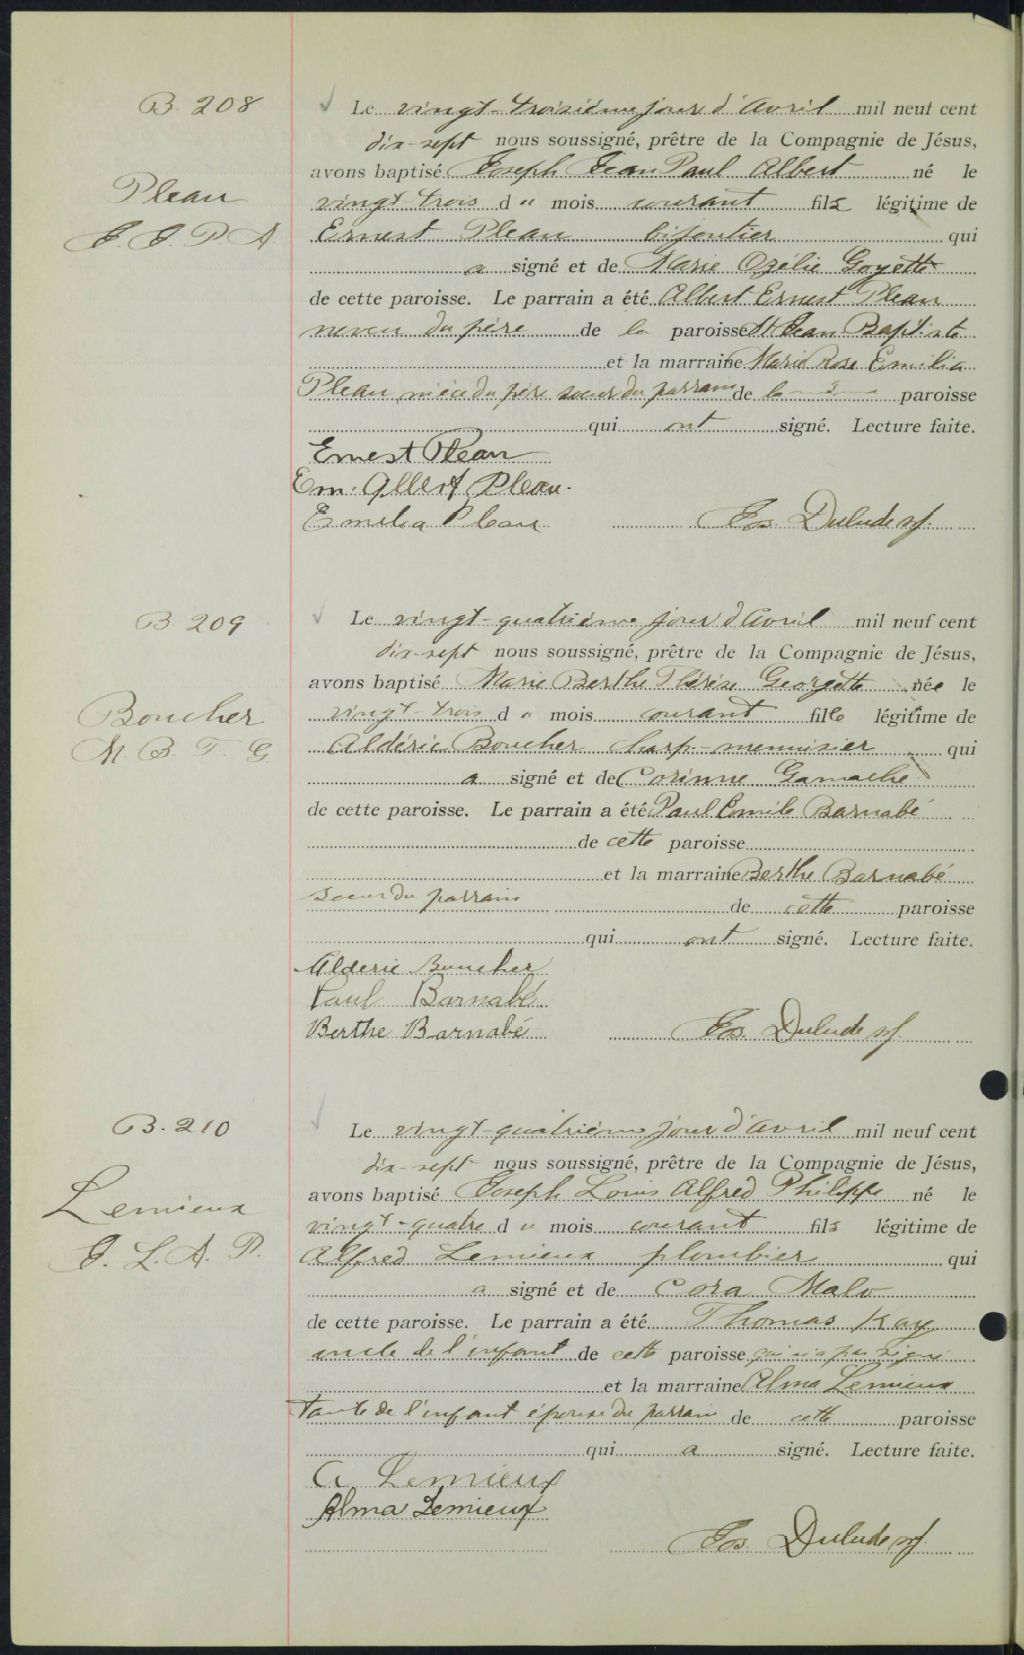 B. 208
Le vingt-troisième jour d'Avril mil neuf cent
dix-sept nous soussigné, prêtre de la Compagnie de Jésus,
avons baptisé Joseph Jean Paul Albert né le
Pleau
vingt trois du mois courant fils légitime de
J. J. P. A.
Ernest Pleau bijoutier qui
a signé et de Marie Ozélie Goyette
de cette paroisse. Le parrain a été Albert Ernest Pleau
neveu du père de la paroisse St Jean Baptiste
et la marraine Marie Rose Emilia
Pleau nièce du père soeur du parrain de la — " — paroisse
qui ont signé. Lecture faite.
Ernest Pleau
Em. Albert Pleau.
Emilia Pleau Jos. Dulude sj.
B 209
Le vingt-quatrième jour d'Avril mil neuf cent
dix-sept nous soussigné, prêtre de la Compagnie de Jésus,
avons baptisé Marie Berthe Thérèse Georgette née le
Boucher
vingt-trois du mois courant fille légitime de
M. B. T. G
Aldéric Boucher charp-menuisier qui
a signé et de Corinne Gamache
de cette paroisse. Le parrain a été Paul Emile Barnabé
de cette paroisse
et la marraine Berthe Barnabé
soeur du parrain de cette paroisse
qui ont signé. Lecture faite.
Alderic Boucher
Paul Barnabé
Berthe Barnabé Jos. Dulude sj.
B. 210
Le vingt-quatrième jour d'Avril mil neuf cent
dix-sept nous soussigné, prêtre de la Compagnie de Jésus,
avons baptisé Joseph Louis Alfred Philippe né le
Lemieux
vingt-quatre du mois courant fils légitime de
J. L. A. P.
Alfred Lemieux plombier qui
a signé et de Cora Malo
de cette paroisse. Le parrain a été Thomas Kay
oncle de l'enfant de cette paroisse qui n'a pas signé
et la marraine Alma Lemieux
tante de l'enfant épouse du parrain de cette paroisse
qui a signé. Lecture faite.
A Lemieux
Alma Lemieux
Jos. Dulude sj.